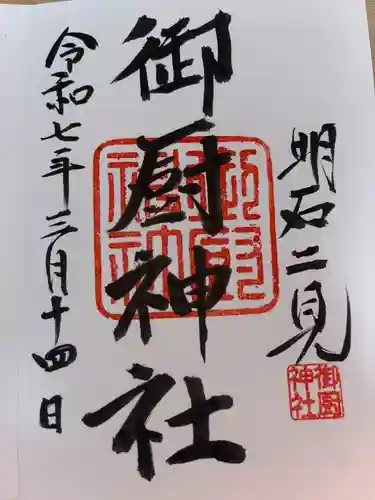 明石二見
御厨神社
御厨神社
令和七年三月十四日